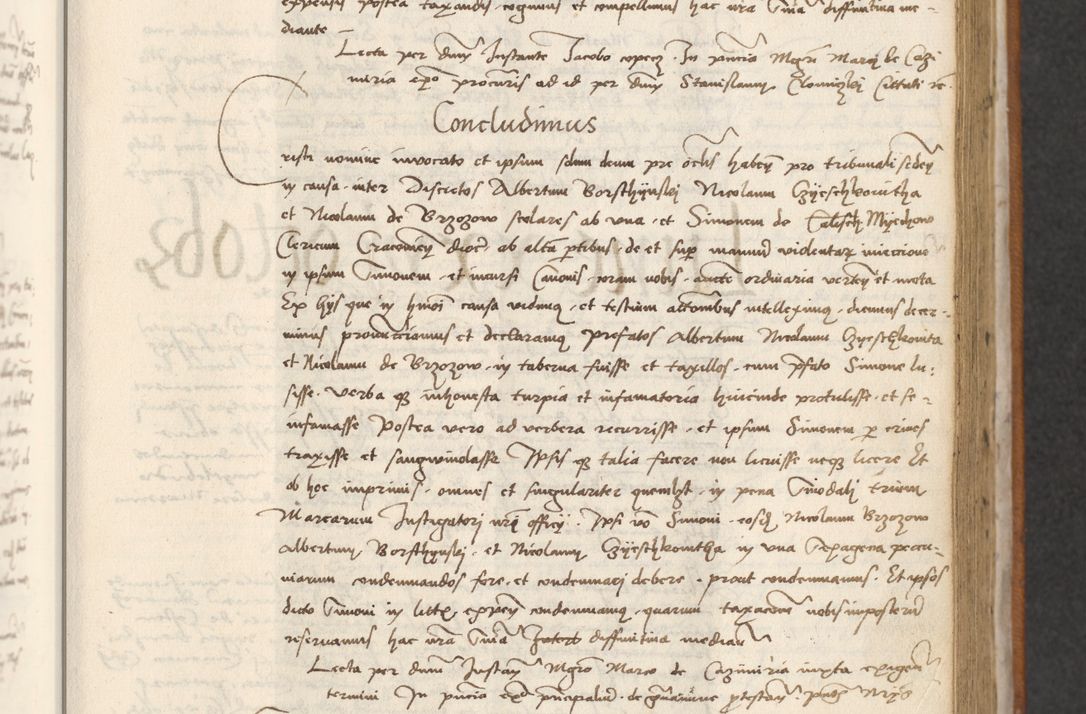 expensis postea taxandis cognitis et compellimus hac nra sma diffinitiva me-
diante
Lecta per dnm Instante Jacobo in pncia Mgri Marci de Cazi
miria procuris ad id per dnm Stanislaum Clomiczkj Citati
Concludimus
risti nomine invocato et ipsum solum deum pre oclis habens pro tribunali seden
in causa inter Discretos Albertum Borsthynskj Nicolaum Czyeschkowitha
et Nicolaum de Brzozow scolares ab una et Simonem de Calisch Myechow
Clericum Cracowien dioc ab alta ptibus de et sup manuu violentar iniectione
in ipsum Simonem et incursi Canonis coram nobis aucte ordinaria verten et mota
Ex hys que in hmoi causa vidimus et testium attonibus intelleximus dicimus decer-
nimus pronunctiamus et declaramus prefatos Albertum Nicolaum Czyeschkowita
et Nicolaum de Brzozow in taberna fuisse et taxillos cum pfato Simone lu-
sisse verba q inhonesta turpia et infamatoria hincinde protulisse et se-
infamasse Postea vero ad verbera recurrisse et ipsum Simonem p crines
traxisse et sangwinolasse Ipsis q talia facere non licuisse neq licere Et
ob hoc imprimis omnes et singulariter quemlibt in pena Sinodalj trium
Marcarum Instigatori nri officij Ipsi vo Simoni eosd Nicolaum Brzozow
Albertum Borsthynskj et Nicolaum Czyeschkowitha in una sexagena pecu-
niarum condemnandos fore et condemnari debere prout condemnamus Et ipsos
dicto Simoni in litis expen condemnamus quarum taxacionem nobis imposterum
reservamus hac nra sma diffinitiva median
Lecta per dnm Instan Mgro Marco de Cazimiria iuxta exigen
termini In pncia principaliu de gravamine ptestan pntibus